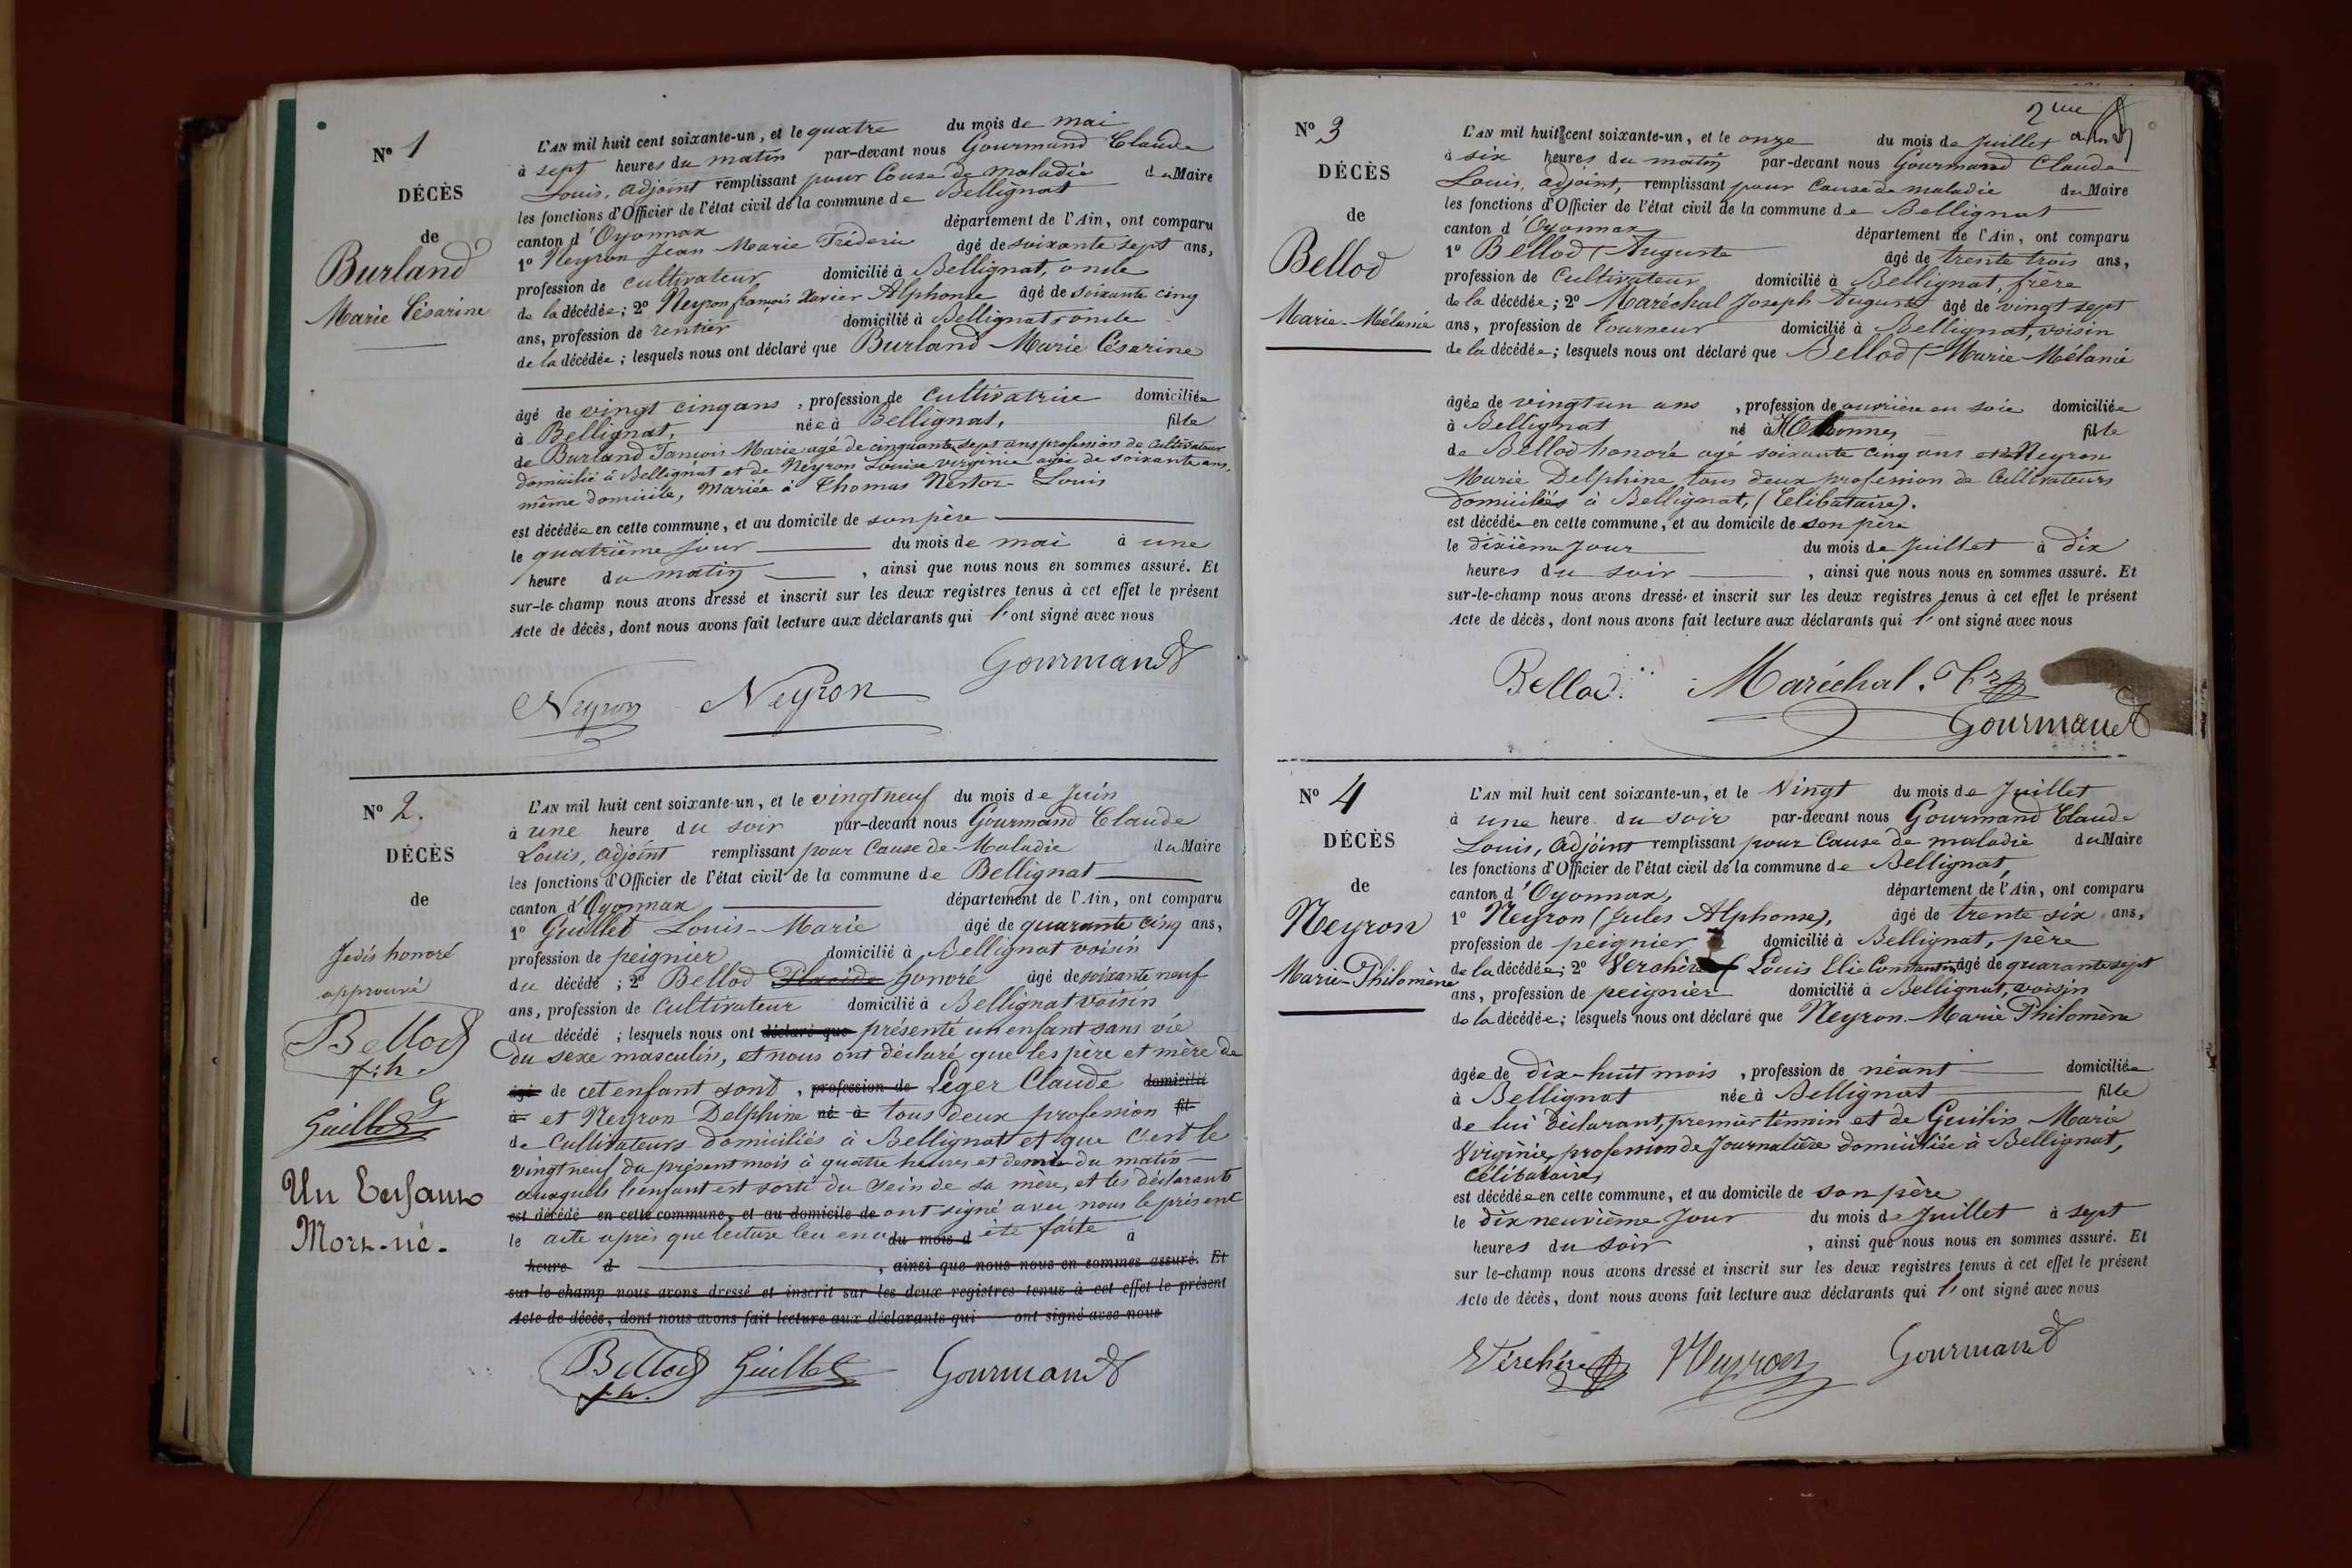 Nº 1
DÉCÈS
de
Burland
Marie Césarine
L'AN mil huit cent soixante-un, et le quatre du mois de mai
à sept heures du matin par-devant nous Gourmand Claude
Louis, adjoint remplissant pour Cause de maladie du Maire
les fonctions d'Officier de l'état civil de la commune de Bellignat
canton d'Oyonnax département de l'Ain, ont comparu
1º Neyron Jean Marie Fréderic âgé de soixante sept ans,
profession de cultivateur domicilié à Bellignat, oncle
de la décédée; 2º Neyron françois Xavier Alphonse âgé de soixante cinq
ans, profession de rentier domicilié à Bellignat, oncle
de la décédée; lesquels nous ont déclaré que Burland Marie Césarine
âgé de vingt cinq ans, profession de cultivatrice domiciliée
à Bellignat, née à Bellignat, fille
de Burland François Marie agé de cinquante sept ans profession de cultivateur
domicilié à Bellignat et de Neyron Louise virginie agée de soixante ans,
même domicile, Mariée à Thomas Nestor Louis
est décédée en cette commune, et au domicile de son père
le quatrième jour du mois de mai à une
heure du matin, ainsi que nous nous en sommes assuré. Et
sur-le-champ nous avons dressé et inscrit sur les deux registres tenus à cet effet le présent
Acte de décès, dont nous avons fait lecture aux déclarants qui l'ont signé avec nous
Gourmand
Neyron Neyron
Nº 2.
DÉCÈS
de
Jedis honoré
approuvé
Bellod
f. h.
G
Guillet
Un Enfant
Mort-né.
L'AN mil huit cent soixante-un, et le vingt neuf du mois de Juin
à une heure du soir par-devant nous Gourmand Claude
Louis, adjoint remplissant pour Cause de Maladie du Maire
les fonctions d'Officier de l'état civil de la commune de Bellignat
canton d'Oyonnax département de l'Ain, ont comparu
1º Guillet Louis-Marie âgé de quarante cinq ans,
profession de peignier domicilié à Bellignat voisin
du décédé; 2º Bellod Placide honoré âgé de soixante neuf
ans, profession de Cultivateur domicilié à Bellignat voisin
du décédé; lesquels nous ont déclaré que présenté un enfant sans vie
du sexe masculin, et nous ont déclaré que les père et mère de
âgé de cet enfant sont, profession de Léger Claude domicilié
à et Neyron Delphine né à tous deux profession fil
de Cultivateurs domiciliés à Bellignat et que c'est le
vingt neuf du présent mois à quatre heures et demie du matin
auxquels l'enfant est sorti du sein de sa mère, et les déclarants
est décédé en cette commune, et au domicile de ont signé avec nous le présent
le acte après que lecture leu en a du mois d été faite à
heure d, ainsi que nous nous en sommes assuré. Et
sur le champ nous avons dressé et inscrit sur les deux registres tenus à cet effet le présent
Acte de décès, dont nous avons fait lecture aux déclarants qui ont signé avec nous
Bellod Guillet Gourmand
f. h.
2me
Nº 3
DÉCÈS
de
Bellod
Marie-Mélanie
L'AN mil huit cent soixante-un, et le onze du mois de Juillet
à six heures du matin par-devant nous Gourmand Claude
Louis, adjoint, remplissant pour Cause de maladie du Maire
les fonctions d'Officier de l'état civil de la commune de Bellignat
canton d'Oyonnax département de l'Ain, ont comparu
1º Bellod (Auguste âgé de trente trois ans,
profession de Cultivateur domicilié à Bellignat, frère
de la décédée; 2º Maréchal Joseph Auguste âgé de vingt sept
ans, profession de tourneur domicilié à Bellignat, voisin
de la décédée; lesquels nous ont déclaré que Bellod (Marie Mélanie
âgée de vingt un ans, profession de ouvrière en soie domiciliée
à Bellignat né à fille
de Bellod honoré agé soixante cinq ans et Neyron
Marie Delphine, tous deux profession de Cultivateurs
domiciliés à Bellignat, (Célibataire).
est décédée en cette commune, et au domicile de son père
le dixième jour du mois de Juillet à dix
heures du soir, ainsi que nous nous en sommes assuré. Et
sur-le-champ nous avons dressé et inscrit sur les deux registres tenus à cet effet le présent
Acte de décès, dont nous avons fait lecture aux déclarants qui l'ont signé avec nous
Bellod. Maréchal.
Gourmand
Nº 4
DÉCÈS
de
Neyron
Marie-Philomène
L'AN mil huit cent soixante-un, et le Vingt du mois de Juillet
à une heure du soir par-devant nous Gourmand Claude
Louis, Adjoint remplissant pour Cause de maladie du Maire
les fonctions d'Officier de l'état civil de la commune de Bellignat,
canton d'Oyonnax, département de l'Ain, ont comparu
1º Neyron (Jules Alphonse), âgé de trente six ans,
profession de peignier domicilié à Bellignat, père
de la décédée; 2º Verchère Louis Elie Constantin, âgé de quarante sept
ans, profession de peignier domicilié à Bellignat, voisin
de la décédée; lesquels nous ont déclaré que Neyron Marie Philomène
âgée de dix-huit mois, profession de néant domiciliée
à Bellignat née à Bellignat fille
de lui déclarant, premier témoin et de Guilin Marie
Virginie, profession de Journalière domiciliée à Bellignat,
Célibataire
est décédée en cette commune, et au domicile de son père
le dix neuvième Jour du mois de Juillet à sept
heures du soir, ainsi que nous nous en sommes assuré. Et
sur le-champ nous avons dressé et inscrit sur les deux registres tenus à cet effet le présent
Acte de décès, dont nous avons fait lecture aux déclarants qui l'ont signé avec nous
Vérchère Neyron Gourmand